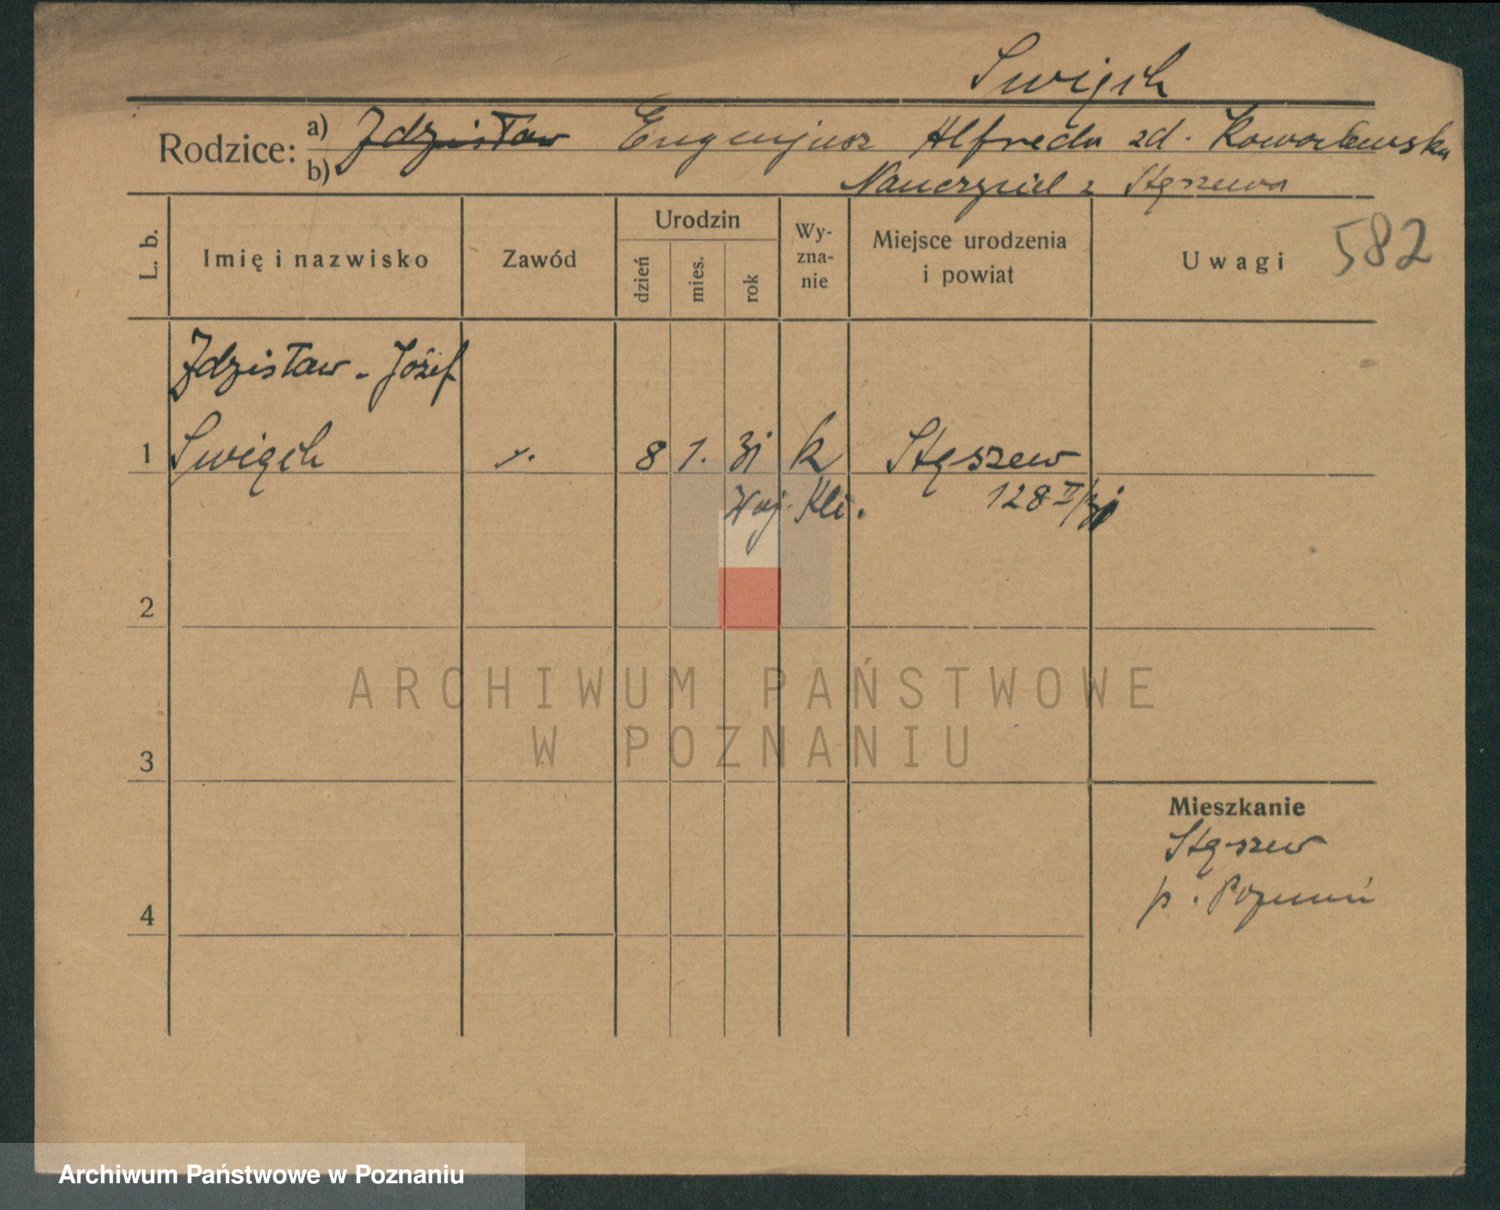 Swięch
Rodzice: a) Zdzisław Eugenjusz Alfreda zd. Kowalewska
b) Nauczyciel z Stęszewa
582
L. b. Imię i nazwisko Zawód Urodzin dzień mies. rok Wy-zna-nie Miejsce urodzenia i powiat Uwagi
Zdzisław - Józef
1 Swięch 8 1. 31 k Stęszew
Woj. Kli. 128 II/31
2
ARCHIWUM PAŃSTWOWE
W POZNANIU
3
Mieszkanie
Stęszew
p. Poznań
4
Archiwum Państwowe w Poznaniu